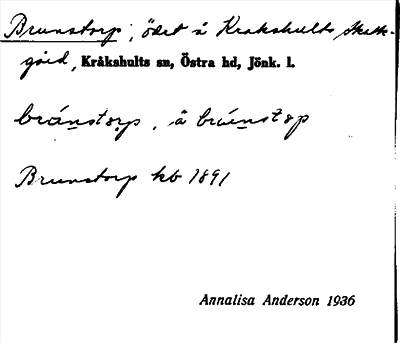 Brunstorp, ödet å Krakshults Skatte-
gård, Kråkshults sn, Östra hd, Jönk. l.
bránstorp, å brúenstop
Brunstorp kb 1891
Annalisa Anderson 1936